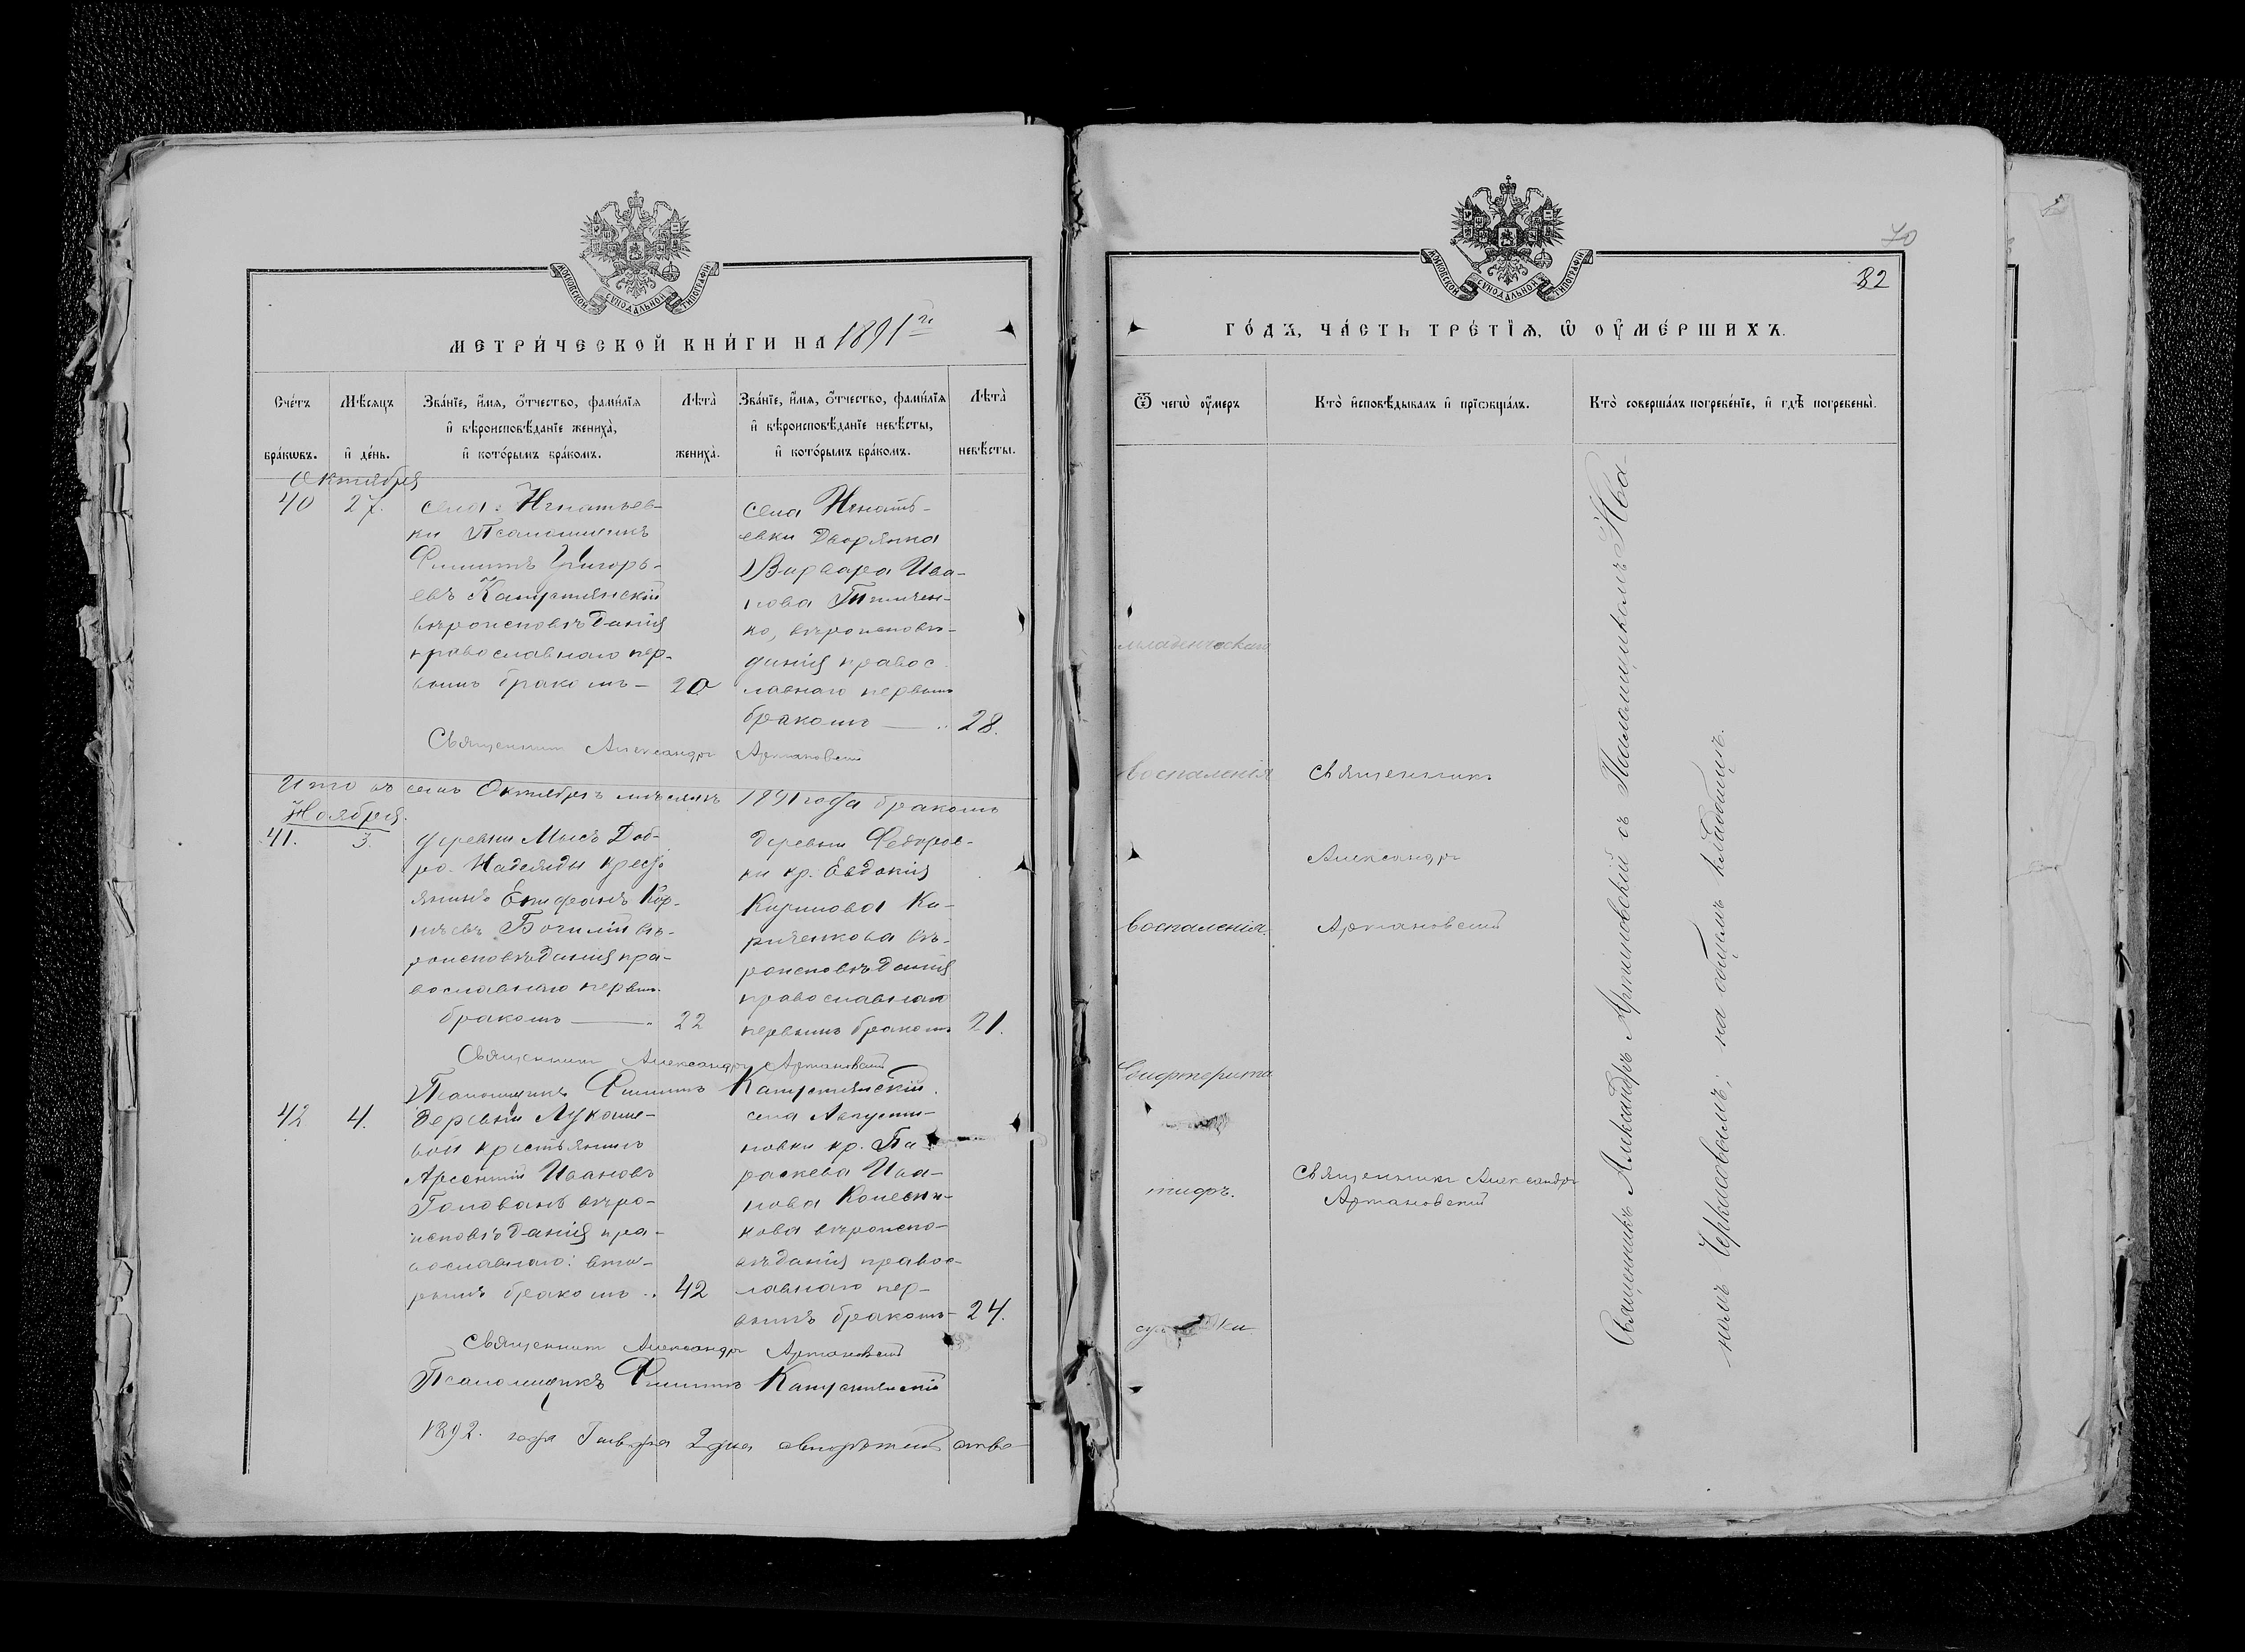 МОСКОВСКОЙ СѴНОДАЛЬНОЙ ТИПОГРАФІИ
МЕТРИ́ЧЕСКОЙ КНИ́ГИ НА 1891 г.
Сче́тъ бра́кѡвъ.
Мѣ́сяцъ и҆ де́нь.
Зва́нїе, и҆́мя, ѻ҆́тчество, фами́лїя
и҆ вѣроисповѣ́данїе жениха̀,
и҆ кото́рымъ бра́комъ.
Лѣ́та̀ жениха̀.
Зва́нїе, и҆́мя, ѻ҆́тчество, фами́лїя
и҆ вѣроисповѣ́данїе невѣ́сты,
и҆ кото́рымъ бра́комъ.
Лѣ́та̀ невѣ́сты.
Октября
40 27.
села Игнатьев-
ки Псаломщикъ
Филиппъ Григорь-
евъ Капустянскій
вѣроисповѣданія
православнаго пер-
вымъ бракомъ — 20
села Игнать-
евки Дворянка
Варвара Ива-
нова
ко, вѣроисповѣ-
данія правос-
лавнаго первымъ
бракомъ — 28.
Священникъ Александръ Артановскій
Октябрѣ мѣсяцѣ 1891 года бракомъ
Ноября.
41. 3.
деревни Мысъ Доб-
ро-Надежды крест
янинъ Епифанъ Кор-
нѣевъ вѣ-
роисповѣданія пра-
вославнаго первым
бракомъ — 22
деревни Федоров-
ки кр. Евдокія
Кирилова Ки-
риченкова вѣ-
роисповѣданія
православнаго
первымъ бракомъ 21.
Священникъ Александръ Артановскій
Псаломщикъ Филиппъ Капустянскій.
42 4.
деревни Лукаше-
вой крестьянинъ
Арсентій Ивановъ
Голованъ вѣро-
исповѣданія пра-
вославнаго: вто-
рымъ бракомъ 42
села Августи-
новки кр. Па-
раскева Ива-
нова Колесни-
кова вѣроиспо-
вѣданія правос-
лавнаго пер-
вымъ бракомъ — 24.
Священникъ Александръ Артановскій
Псаломщикъ Филиппъ Капустянскій
1892. года Генваря 2 дня
70
82
МОСКОВСКОЙ СѴНОДАЛЬНОЙ ТИПОГРАФІИ
ГО́ДЪ, ЧА́СТЬ ТРЕ́ТЇѦ, Ѡ҆ ОУ҆МЕ́РШИХЪ.
Ѿ чегѡ̀ оу҆́меръ
Кто̀ и҆сповѣ́дывалъ и҆ прїѡбща́лъ.
Кто̀ соверша́лъ погребе́нїе, и҆ гдѣ̀ погребены̀.
младенческаго
воспаленія Священникъ
Александръ
воспаленія. Артановскій
тифъ. Священникъ Александръ
Артановскій
Священникъ Александръ Артановскій съ Псаломщикомъ Ива-
номъ Черкасовымъ; на общемъ кладбищѣ.